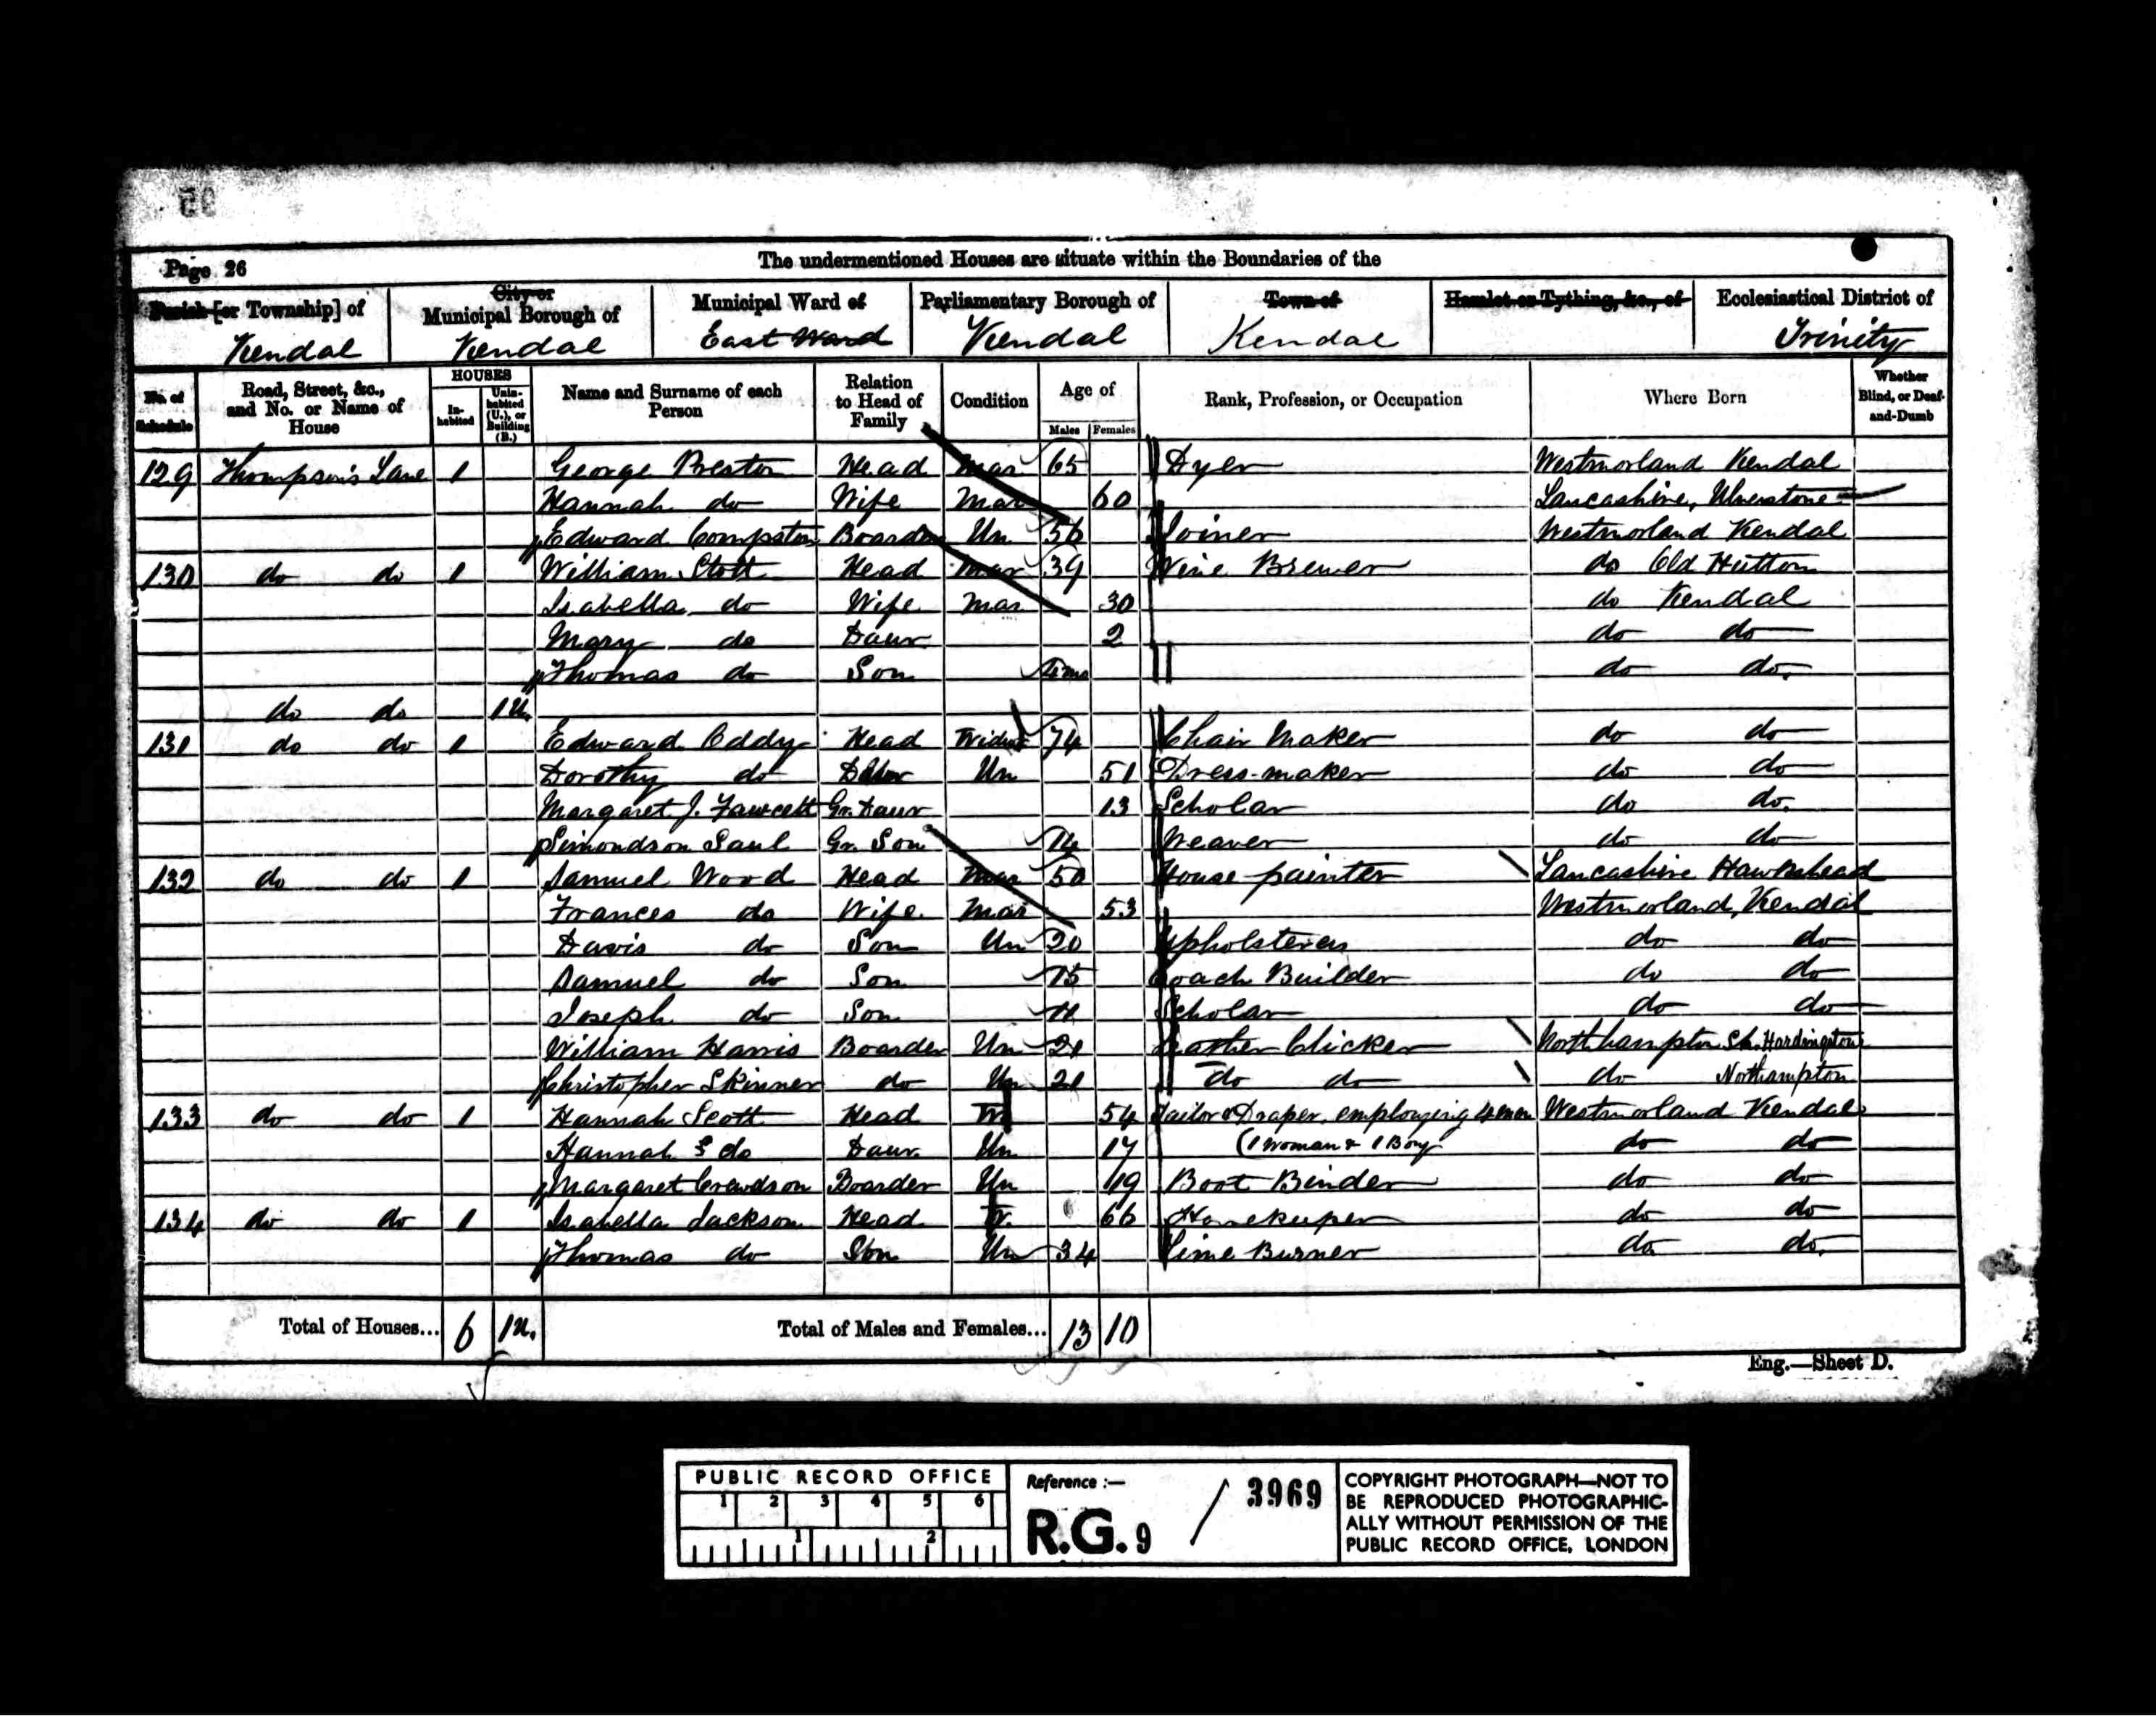 95
Page 26
The undermentioned Houses are situate within the Boundaries of the
Parish [or Township] of
Kendal
City or Municipal Borough of
Kendal
Municipal Ward of
East Ward
Parliamentary Borough of
Kendal
Town of
Kendal
Hamlet or Tything, &c., of
Ecclesiastical District of
Trinity
No. of Schedule
Road, Street, &c., and No. or Name of House
HOUSES
In-habited
Unin-habited (U.), or Building (B.)
Name and Surname of each Person
Relation to Head of Family
Condition
Age of
Males
Females
Rank, Profession, or Occupation
Where Born
Whether Blind, or Deaf-and-Dumb
129 Thompson's Lane 1 George Preston Head Mar 65 Dyer Westmorland Kendal
Hannah do Wife Mar 60 Lancashire, Ulverstone
Edward Compston Boarder Un 56 Joiner Westmorland Kendal
130 do do 1 William Stott Head Mar 39 Wine Brewer do Old Hutton
Isabella do Wife Mar 30 do Kendal
Mary do Daur 2 do do
Thomas do Son 4 mo do do.
do do 1 U.
131 do do 1 Edward Oddy Head Widr 74 Chair Maker do do
Dorothy do Daur Un 51 Dress-maker do do
Margaret J. Fawcett Gr. Daur 13 Scholar do do.
Simondson Saul Gr. Son 14 Weaver do do
132 do do 1 Samuel Wood Head Mar 50 House painter Lancashire Hawkshead
Frances do Wife Mar 53 Westmorland, Kendal
Davis do Son Un 20 Upholsterer do do
Samuel do Son 15 Coach Builder do do
Joseph do Son 11 Scholar do do
William Harris Boarder Un 21 Leather Clicker Northampton Sh. Hardington
Christopher Skinner do Un 21 do do do Northampton
133 do do 1 Hannah Scott Head W 54 Tailor & Draper, employing 4 men Westmorland Kendal
Hannah S do Daur. Un 17 (1 Woman & 1 Boy do do
Margaret Crewdson Boarder Un 19 Boot Binder do do
134 do do 1 Isabella Jackson Head W. 66 Housekeeper do do
Thomas do Son Un 34 Lime Burner do. do.
Total of Houses... 6 1 U. Total of Males and Females... 13 10
Eng.—Sheet D.
PUBLIC RECORD OFFICE
1 2 3 4 5 6
1 2
Reference :—
R.G. 9 / 3969
COPYRIGHT PHOTOGRAPH—NOT TO
BE REPRODUCED PHOTOGRAPHIC-
ALLY WITHOUT PERMISSION OF THE
PUBLIC RECORD OFFICE, LONDON